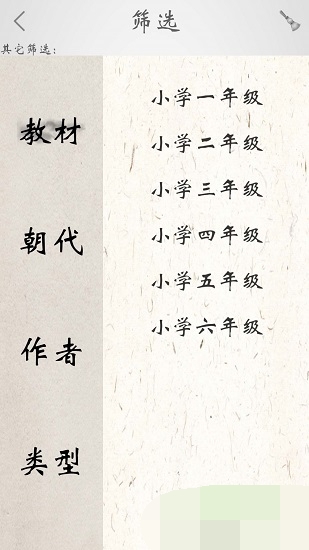 筛选
其它筛选：
教材
朝代
作者
类型
小学一年级
小学二年级
小学三年级
小学四年级
小学五年级
小学六年级